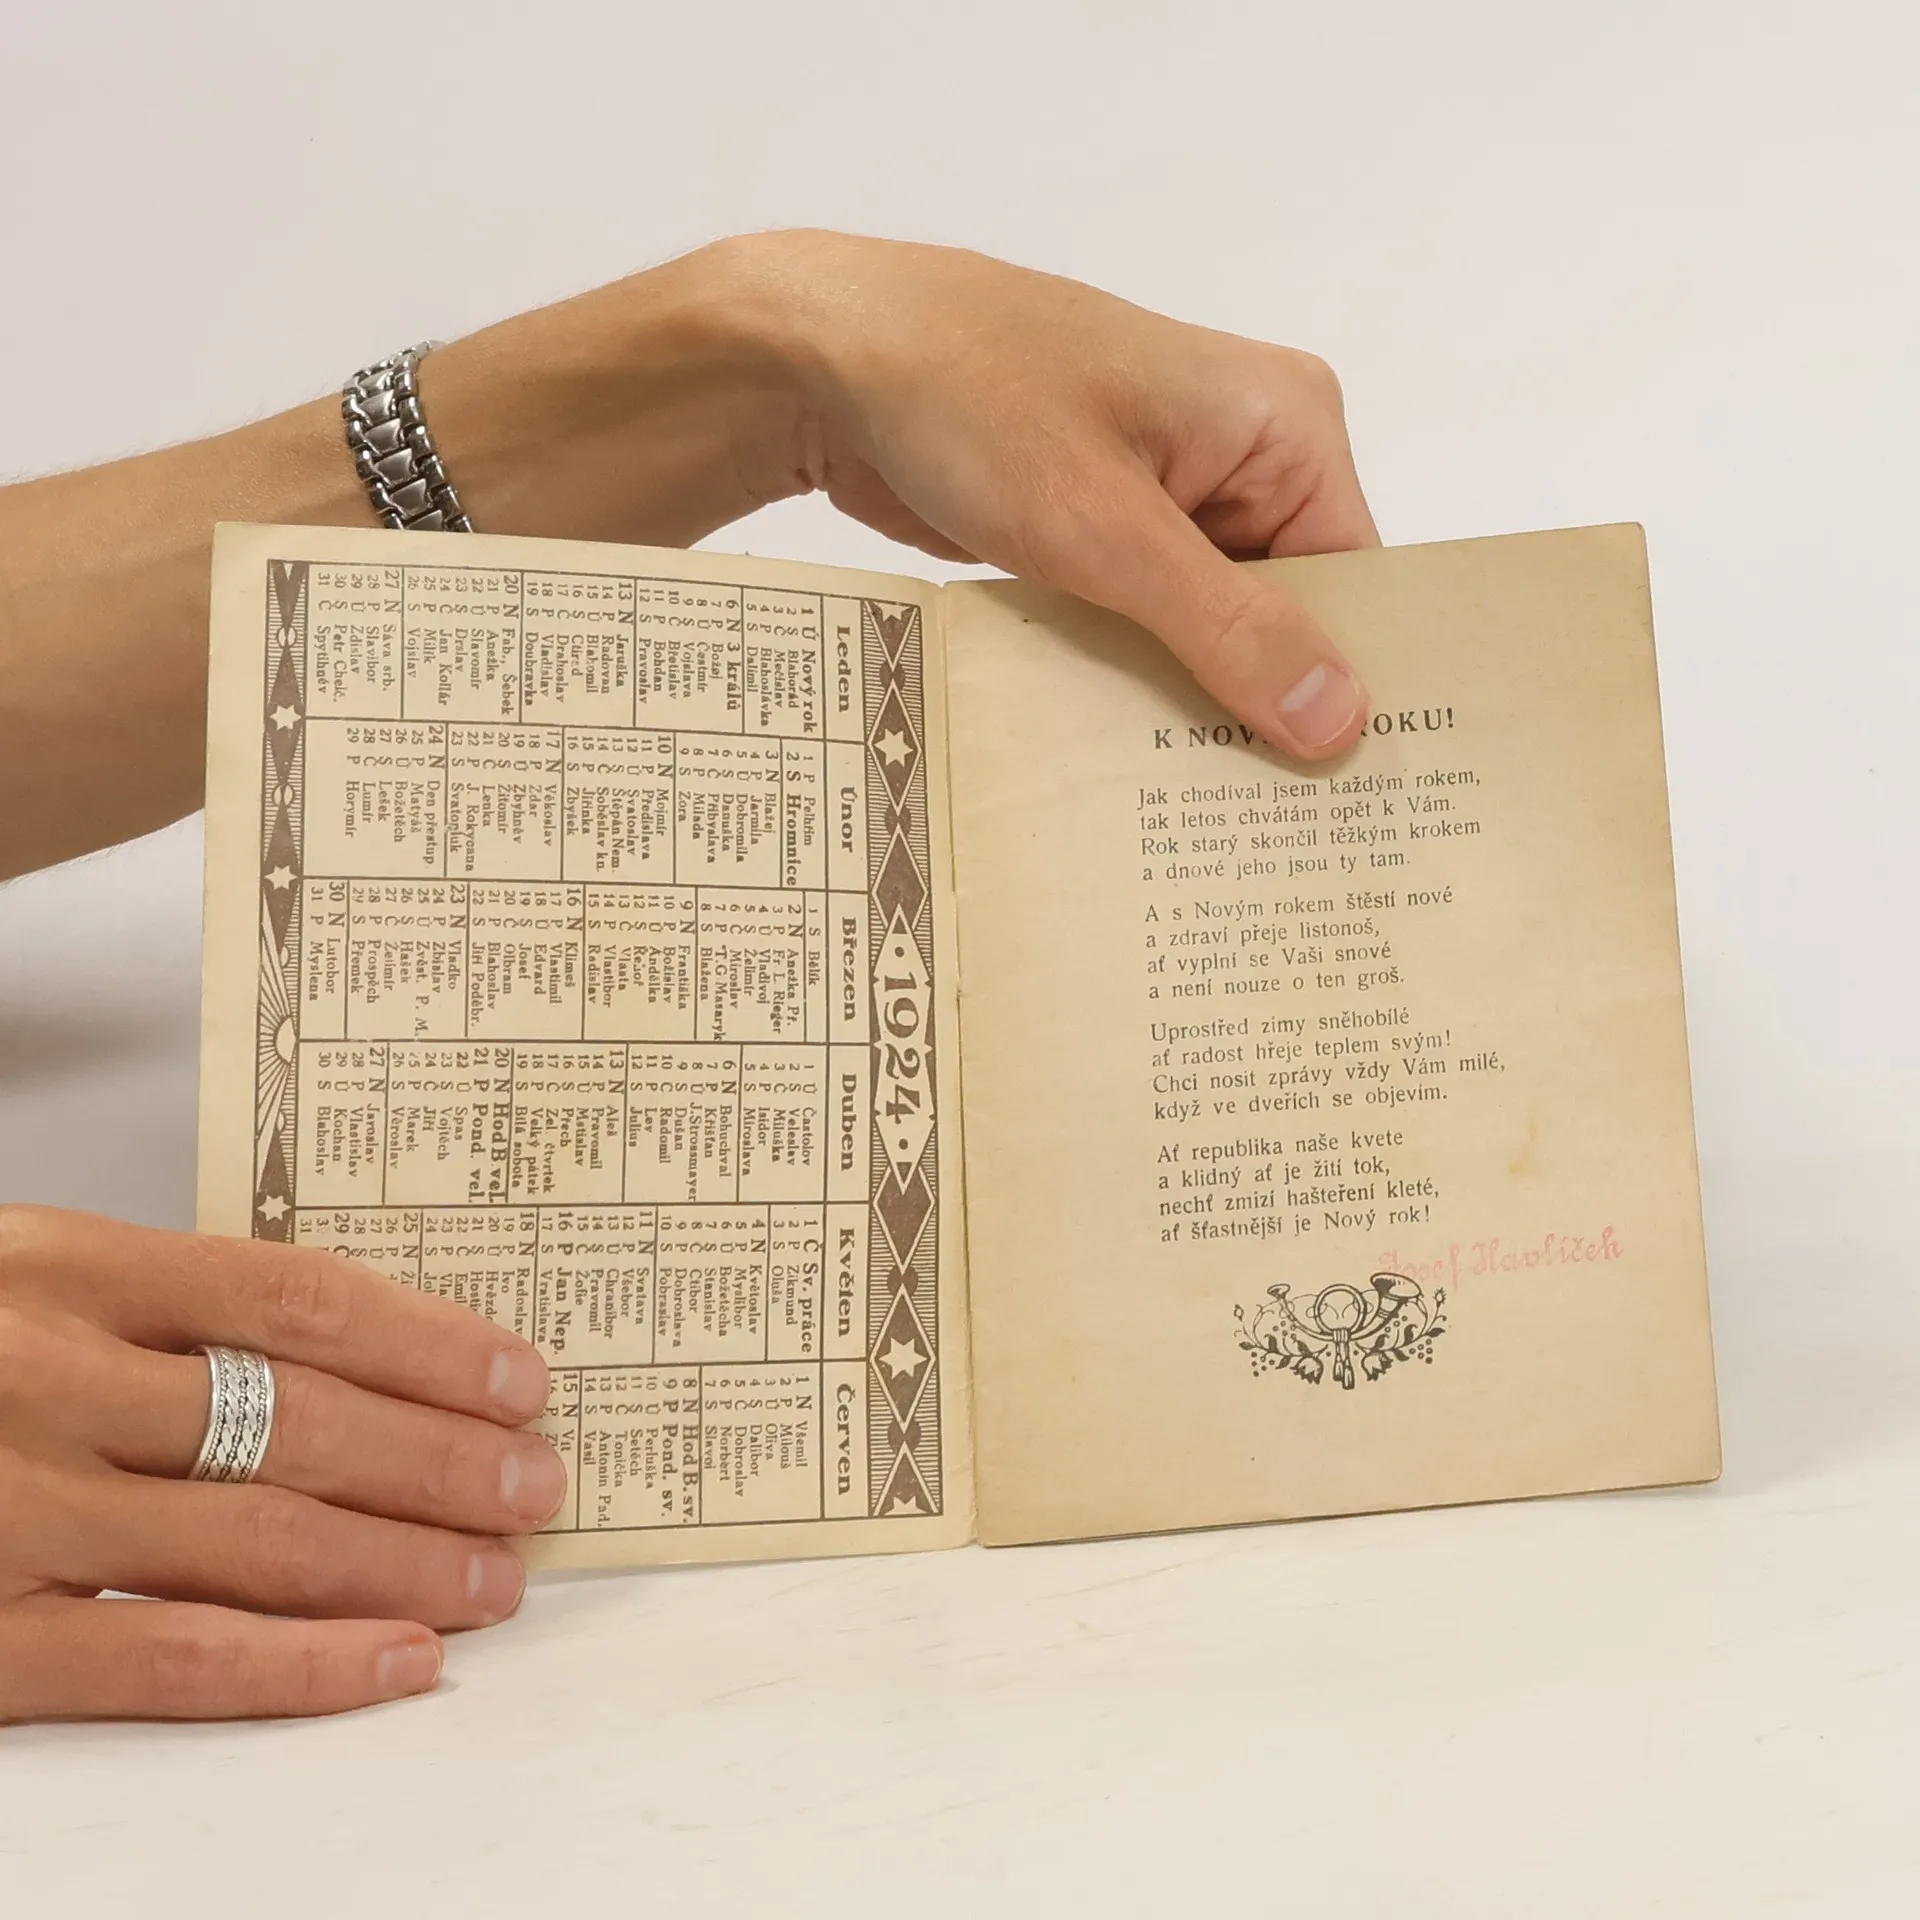 • 1924 •
Leden
1 Ú Nový rok
2 S Blahorád
3 Č Mečislav
4 P Blahoslávka
5 S Dalimil
6 N 3 králů
7 P Božej
8 Ú Čestmír
9 S Vojslava
10 Č Břetislav
11 P Bohdan
12 S Pravoslav
13 N Jaruška
14 P Radovan
15 Ú Blahomil
16 S Ctirad
17 Č Drahoslav
18 P Vladislav
19 S Doubravka
20 N Fab., Šebek
21 P Anežka
22 Ú Slavomír
23 S Drslav
24 Č Jan Kollár
25 P Milík
26 S Vojslav
27 N Sáva srb.
28 P Slavibor
29 Ú Zdislav
30 S Petr Chelč.
31 Č Spytihněv
Únor
1 P Pelhřim
2 S Hromnice
3 N Blažej
4 P Jarmila
5 Ú Dobromila
6 S Danuška
7 Č Přibyslava
8 P Milada
9 S Zora
10 N Mojmír
11 P Předislava
12 Ú Svatoslav
13 S Štěpán Nem.
14 Č Soběslav kn.
15 P Jiřinka
16 S Zbyšek
17 N Věkoslav
18 P Zdar
19 Ú Zbyhněv
20 S Žitomír
21 Č Lenka
22 P J. Rokycana
23 S Svatopluk
24 N Den přestup
25 P Matyáš
26 Ú Božetěch
27 S Lešek
28 Č Lumír
29 P Horymír
Březen
1 S Bělík
2 N Anežka Př.
3 P Fr L. Rieger
4 Ú Vladivoj
5 S Želimír
6 Č Miroslav
7 P T.G Masaryk
8 S Blažena
9 N Františka
10 P Božislav
11 Ú Andělka
12 S Řehoř
13 Č Vlasta
14 P Vlastibor
15 S Radislav
16 N Klimeš
17 P Vlastimil
18 Ú Edvard
19 S Josef
20 Č Olbram
21 P Blahoslav
22 S Jiří Poděbr.
23 N Vladko
24 P Zbislav
25 Ú Zvěst. P. M.
26 S Hašek
27 Č Želimír
28 P Prospěch
29 S Přemek
30 N Lutobor
31 P Myslena
Duben
1 Ú Častolov
2 S Veleslav
3 Č Miluška
4 P Isidor
5 S Miroslava
6 N Bohuchval
7 P Křišťan
8 Ú J.Strossmayer
9 S Dušan
10 Č Radomil
11 P Lev
12 S Julius
13 N Aleš
14 P Pravomil
15 Ú Mstislav
16 S Přech
17 Č Zel. čtvrtek
18 P Velký pátek
19 S Bílá sobota
20 N Hod B. vel.
21 P Pond. vel.
22 Ú Spas
23 S Vojtěch
24 Č Jiří
25 P Marek
26 S Věroslav
27 N Jaroslav
28 P Vlastislav
29 Ú Kochan
30 S Blahoslav
Květen
1 Č Sv. práce
2 P Zikmund
3 S Oluša
4 N Květoslav
5 P Myslibor
6 Ú Božetěcha
7 S Stanislav
8 Č Ctibor
9 P Dobroslava
10 S Pobraslav
11 N Svatava
12 P Všebor
13 Ú Chranibor
14 S Pravomil
15 Č Žofie
16 P Jan Nep.
17 S Vratislava
18 N Radoslav
19 P Ivo
20 Ú
21 S
22 Č
23 P
24 S
25 N
26 P
27 Ú
28 S
29 Č
31
Červen
1 N Všemil
2 P Milouš
3 Ú Oliva
4 S Dalibor
5 Č Dobroslav
6 P Norbert
7 S Slavoj
8 N Hod B. sv.
9 P Pond. sv.
10 Ú Perluška
11 S Setěch
12 Č Tonička
13 P Antonín Pad.
14 S Vasil
15 N Vít
16 P
K NOV ROKU!
Jak chodíval jsem každým rokem,
tak letos chvátám opět k Vám.
Rok starý skončil těžkým krokem
a dnové jeho jsou ty tam.
A s Novým rokem štěstí nové
a zdraví přeje listonoš,
ať vyplní se Vaši snové
a není nouze o ten groš.
Uprostřed zimy sněhobílé
ať radost hřeje teplem svým!
Chci nosit zprávy vždy Vám milé,
když ve dveřích se objevím.
Ať republika naše kvete
a klidný ať je žití tok,
nechť zmizí hašteření kleté,
ať šťastnější je Nový rok!
Josef Havlíček